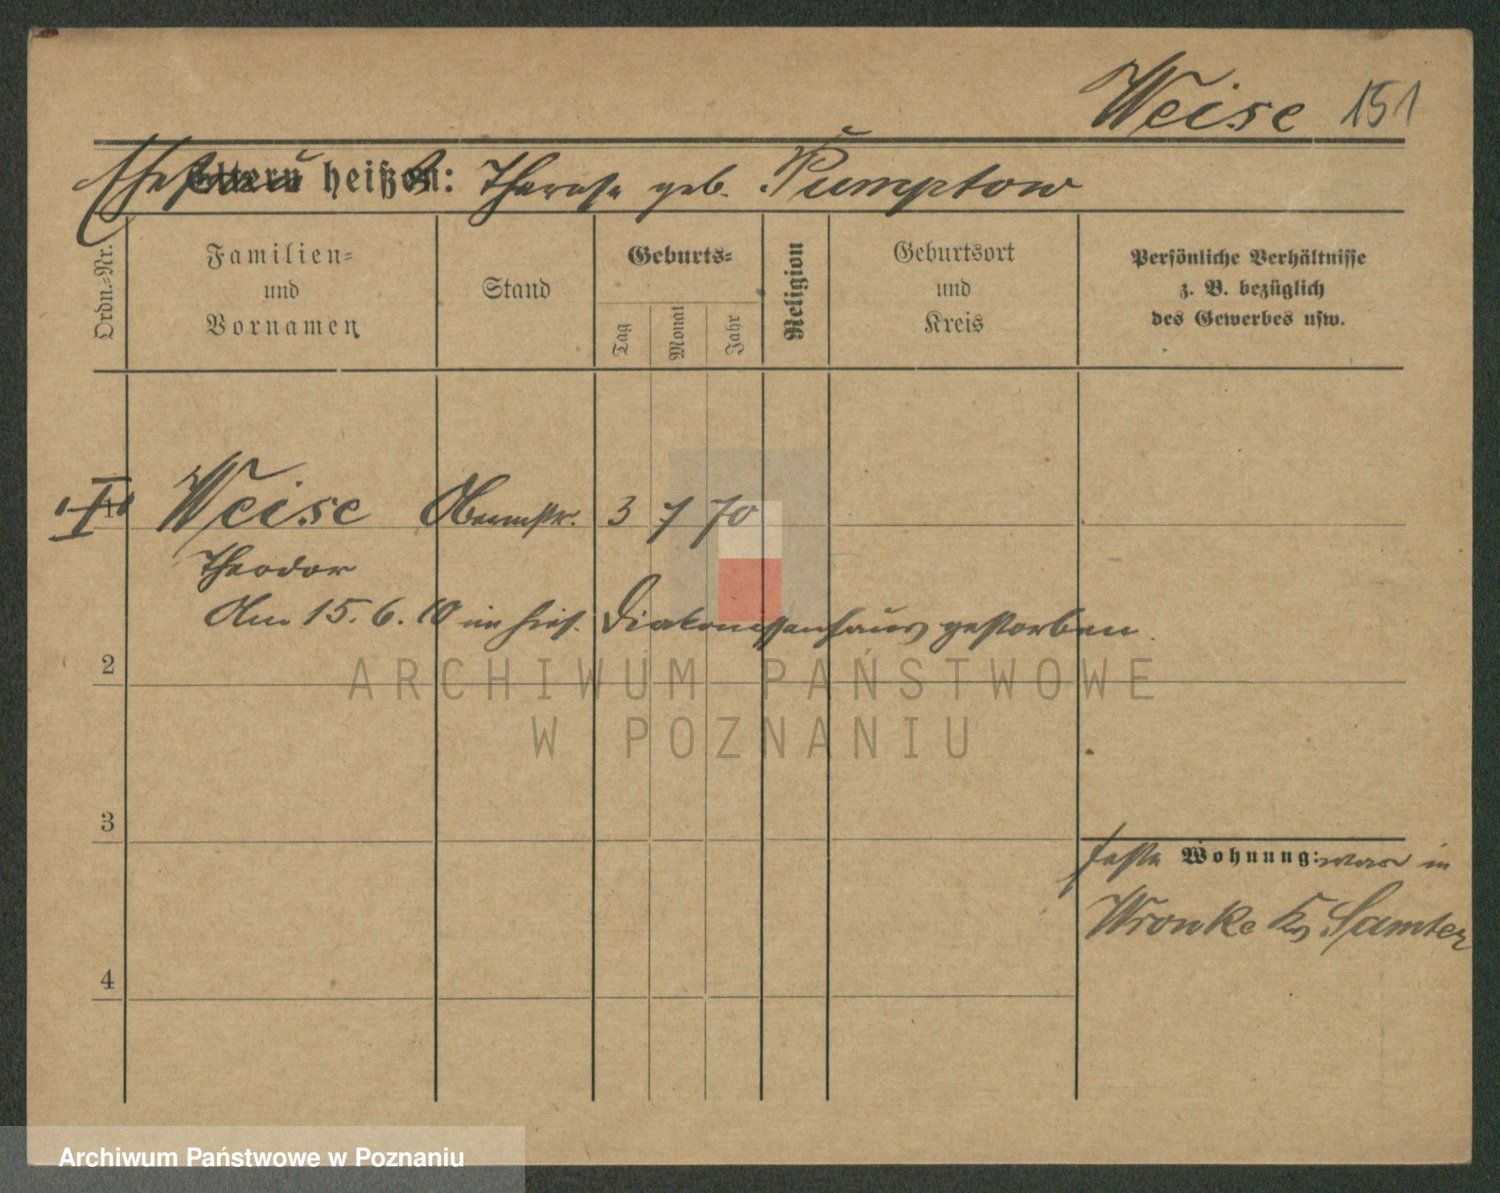 Weise 151
Ehefrau heißt: Therese geb. Pumptow
Ordn.-Nr.
Familien-
und
Vornamen
Stand
Geburts-
Tag
Monat
Jahr
Religion
Geburtsort
und
Kreis
Persönliche Verhältnisse
z. B. bezüglich
des Gewerbes usw.
1 Weise 3 7 70
Theodor
Am 15. 6. 10 im hies. Diakonissenhaus gestorben.
2
3
feste Wohnung: war in
Wronke Kr. Samter
4
ARCHIWUM PAŃSTWOWE
W POZNANIU
Archiwum Państwowe w Poznaniu